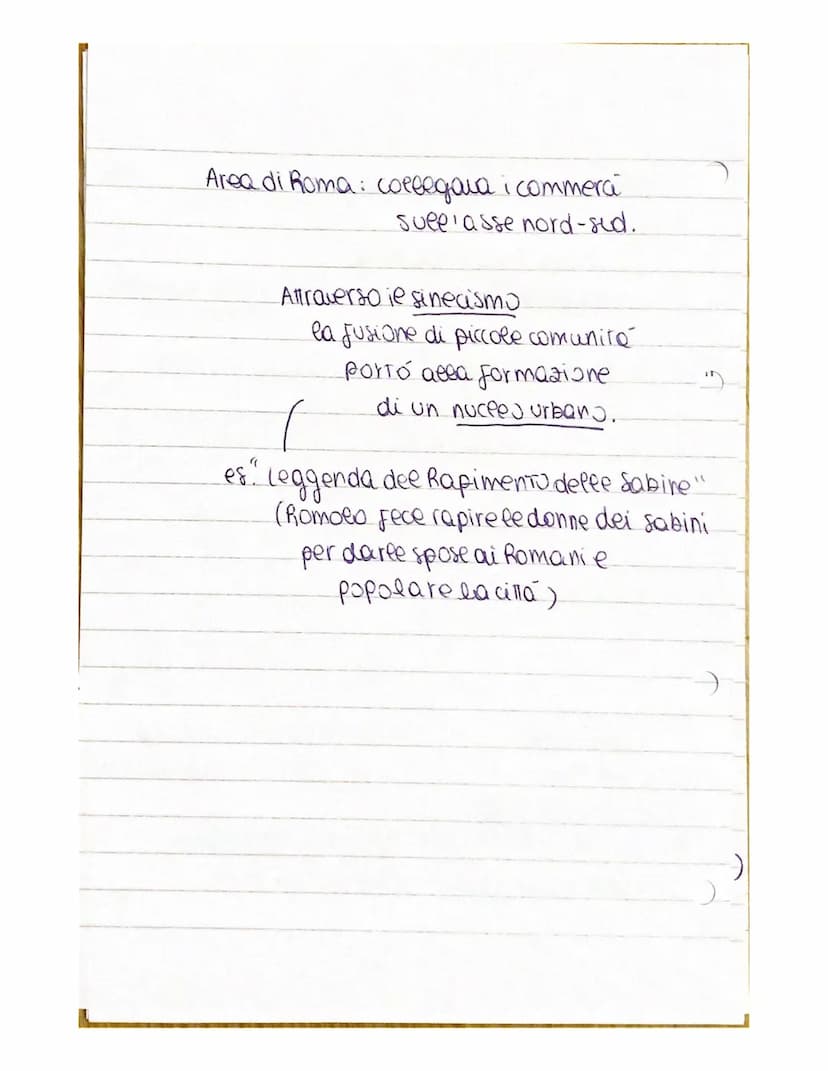 Area di Roma: collegava i commerci
sull'asse nord-sud.
Attraverso il sinecismo
la fusione di piccole comunità
portò alla formazione
di un nucleo urbano.
es. "Leggenda del Rapimento delle Sabine"
(Romolo fece rapire le donne dei Sabini
per darle spose ai Romani e
popolare la città)